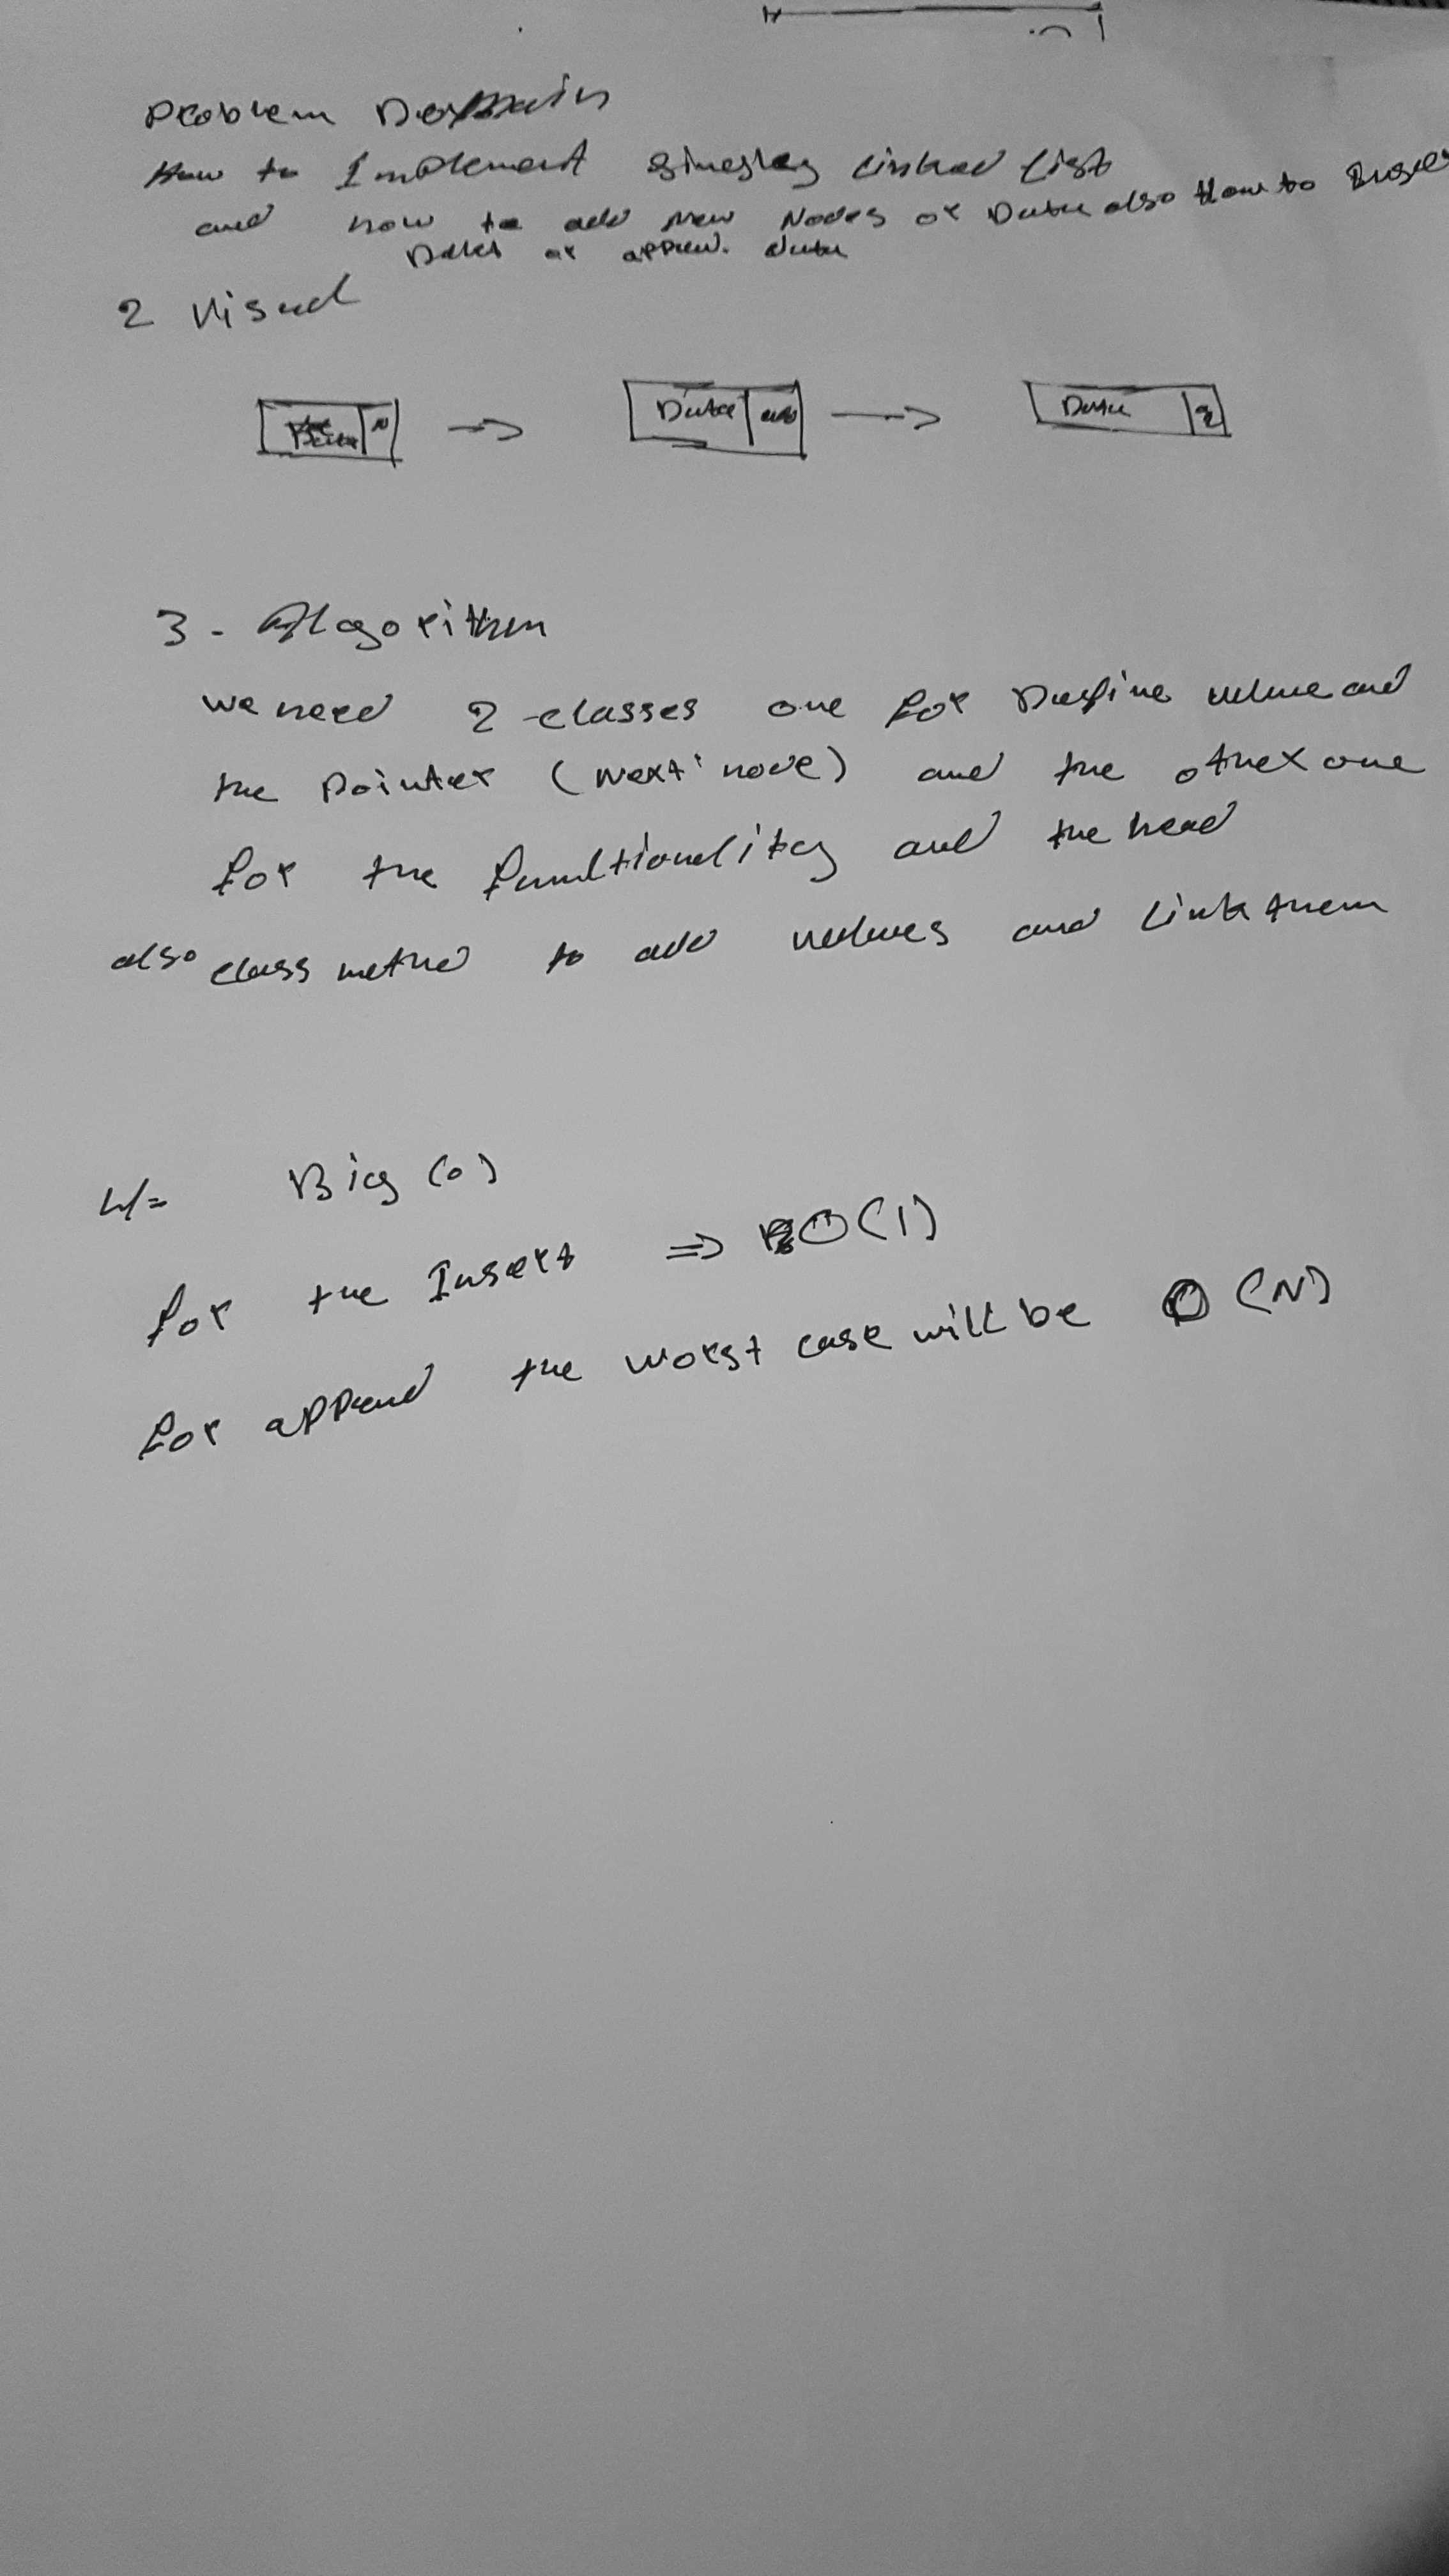 Problem Domain
How to Implement singley linked list
and how to add New Nodes or Data also How to Insert
Data or append. data
2 Visual
Data N Data Data
3 - Algorithm
we need 2 classes one for Define value and
the Pointer (Next node) and the other one
for the functionality and the head
also class method to add values and link them
4/= Big (o)
for the Insert => O(1)
for append the worst case will be O (N)